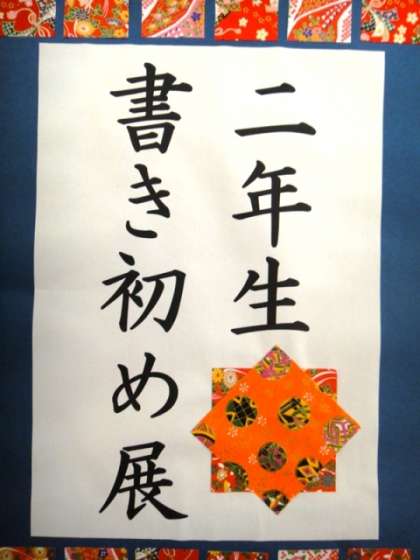 二年生
書き初め展